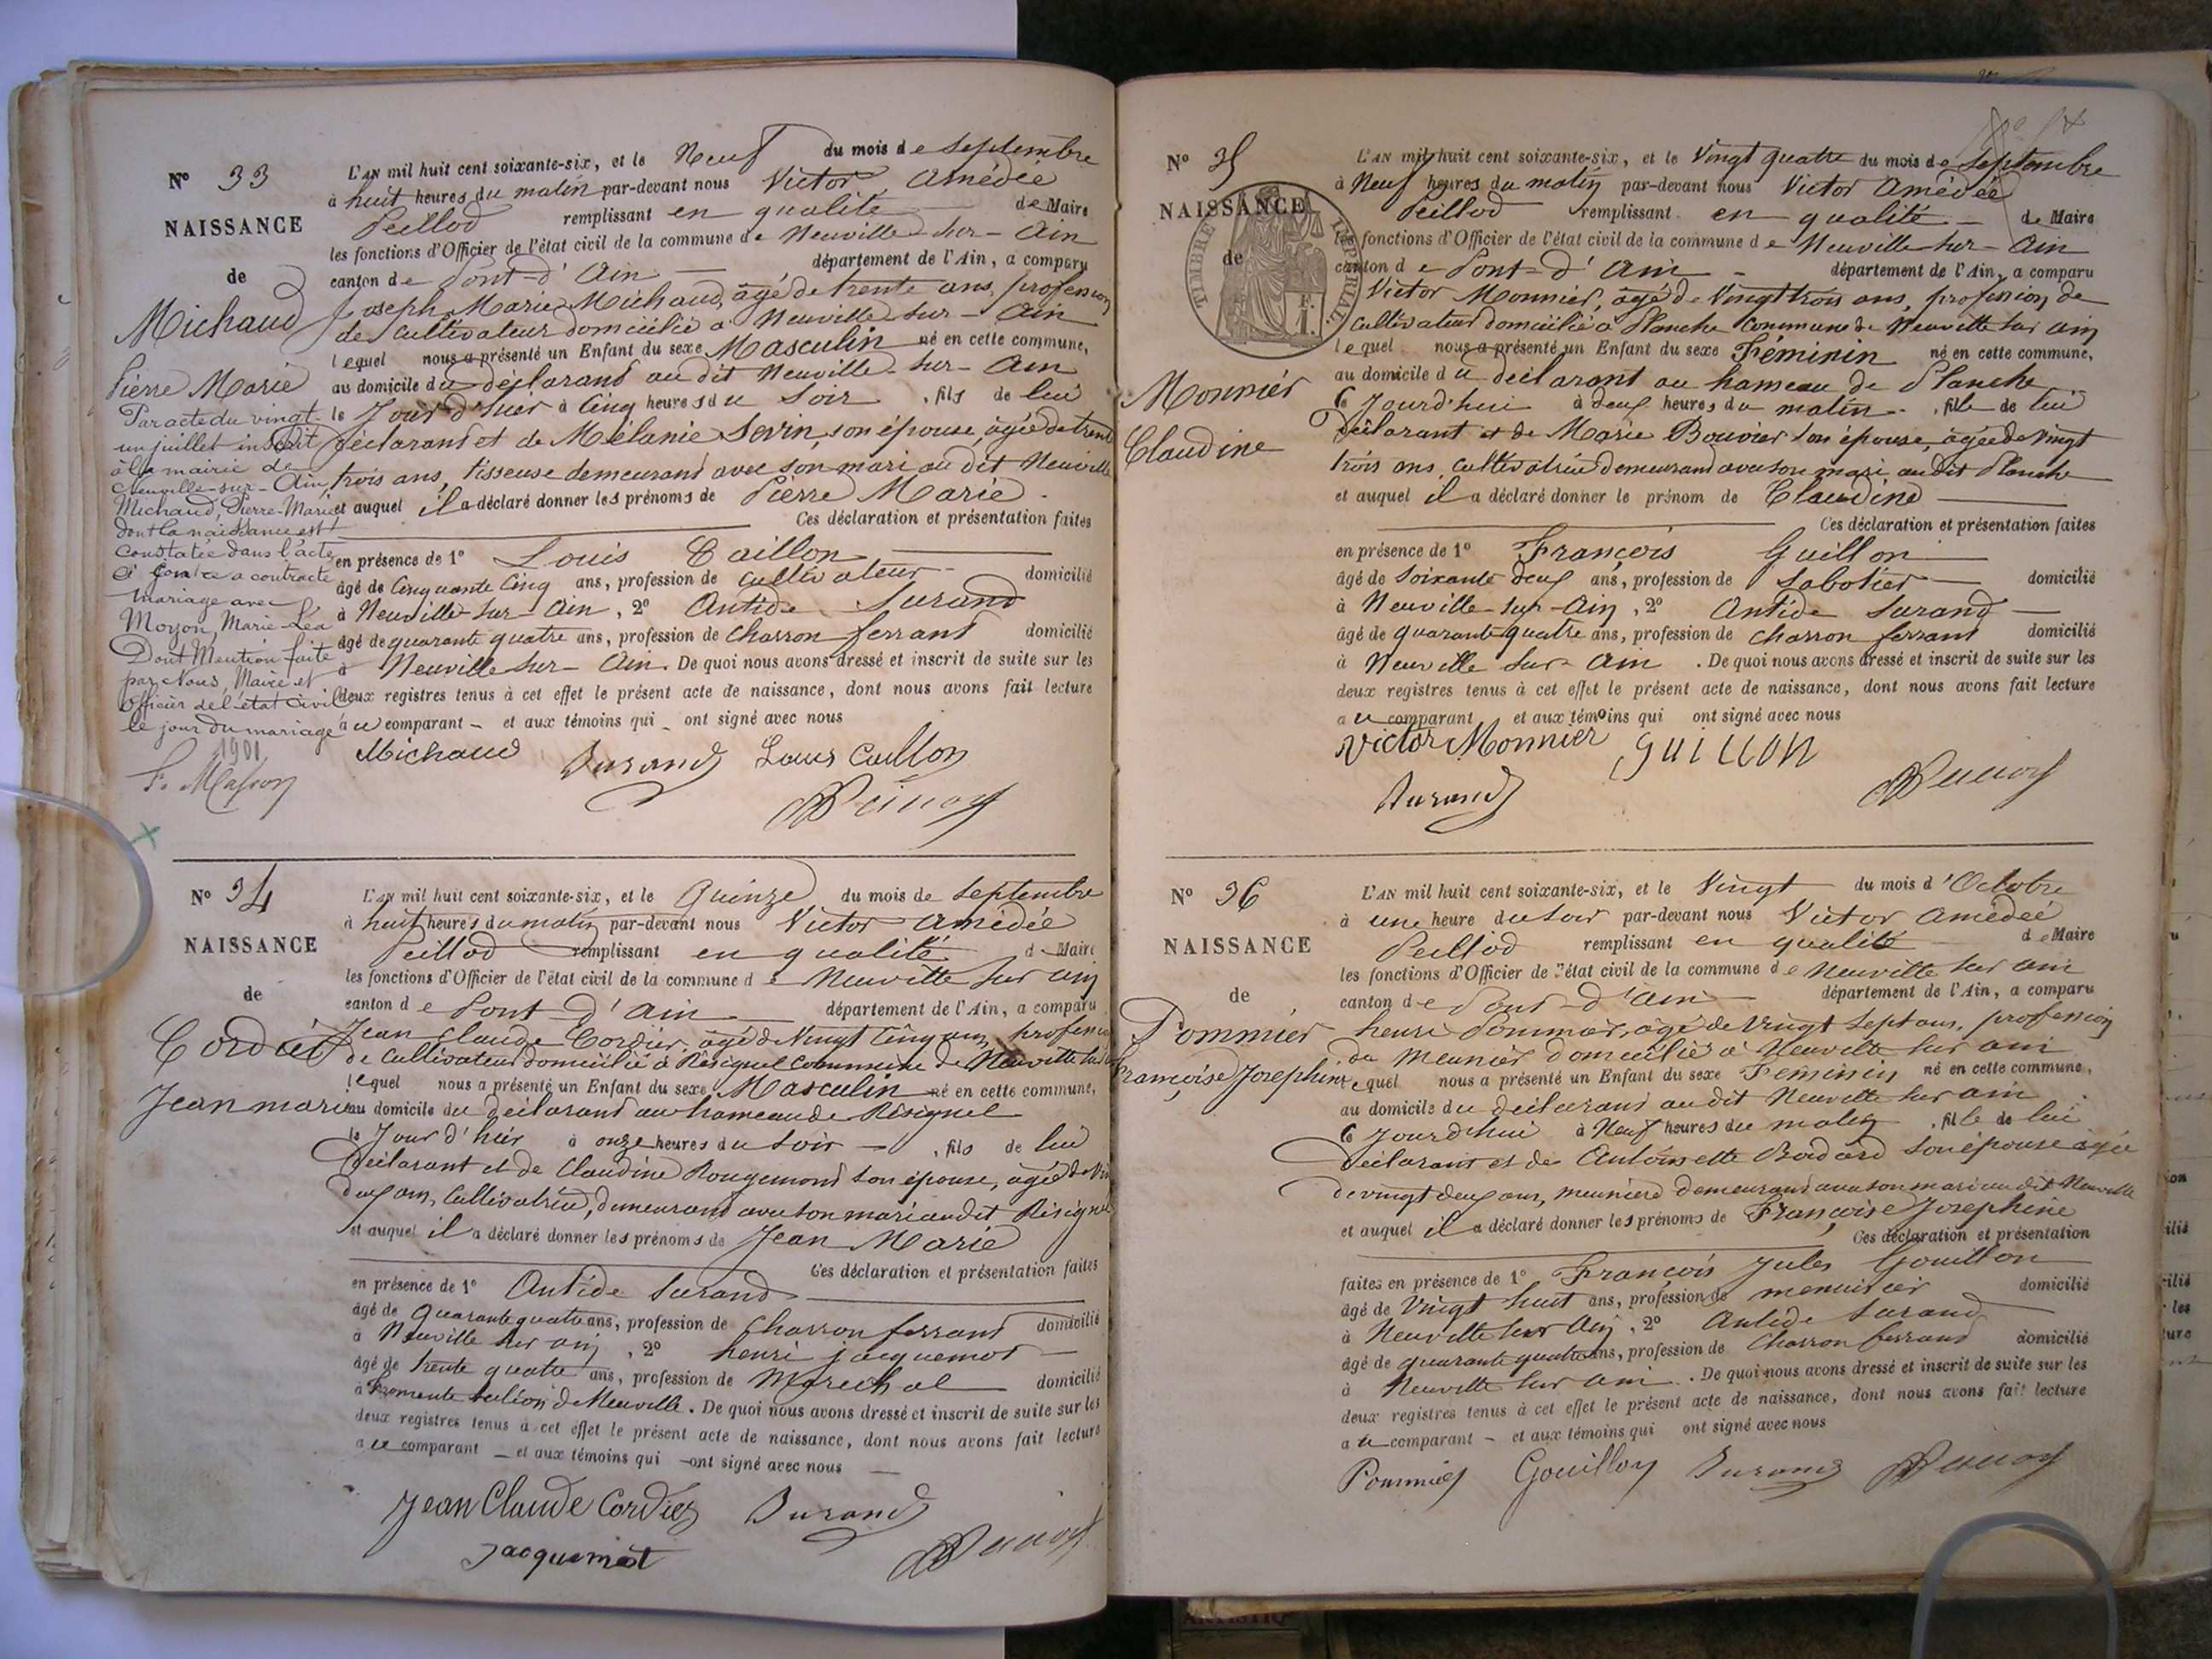 N° 33
NAISSANCE
de
Michaud
Pierre Marie
Par acte du vingt
un juillet inscrit
à la mairie de
Neuville-sur-Ain,
Michaud, Pierre-Marie
dont la naissance est
constatée dans l'acte
ci contre a contracté
mariage avec
Moyon, Marie-Léa
Dont Mention faite
par Nous, Maire et
officier de l'état civil
le jour du mariage
1901
L'AN mil huit cent soixante-six, et le Neuf du mois de Septembre
à huit heures du matin par-devant nous Victor Amédée
Peillod remplissant en qualité de Maire
les fonctions d'Officier de l'état civil de la commune de Neuville-sur-Ain
canton de Pont-d'Ain département de l'Ain, a comparu
Joseph Marie Michaud, âgé de trente ans, profession
de Cultivateur domicilié à Neuville sur-Ain
lequel nous a présenté un Enfant du sexe Masculin né en cette commune,
au domicile du déclarant au dit Neuville-sur-Ain
le Jour d'hier à Cinq heures du Soir, fils de lui
déclarant et de Mélanie Sevrin, son épouse, âgée de trente
trois ans, tisseuse demeurant avec son mari au dit Neuville
et auquel il a déclaré donner les prénoms de Pierre Marie
Ces déclaration et présentation faites
en présence de 1° Louis Caillon
âgé de Cinquante Cinq ans, profession de Cultivateur domicilié
à Neuville-sur-Ain, 2° Antide Durand
âgé de quarante quatre ans, profession de Charron ferrant domicilié
à Neuville sur-Ain. De quoi nous avons dressé et inscrit de suite sur les
deux registres tenus à cet effet le présent acte de naissance, dont nous avons fait lecture
au comparant et aux témoins qui ont signé avec nous
Michaud Durand Louis Caillon
N° 34
NAISSANCE
de
Cordier
Jean marie
L'AN mil huit cent soixante-six, et le Quinze du mois de Septembre
à huit heures du matin par-devant nous Victor Amédée
Peillod remplissant en qualité de Maire
les fonctions d'Officier de l'état civil de la commune de Neuville sur Ain
canton de Pont-d'Ain département de l'Ain, a comparu
Jean Claude Cordier, âgé de Vingt Cinq ans, profession
de Cultivateur domicilié à Résignel commune de Neuville sur
lequel nous a présenté un Enfant du sexe Masculin né en cette commune,
au domicile du déclarant au hameau de Résignel
le Jour d'hier à onze heures du Soir, fils de lui
déclarant et de Claudine Rougemont son épouse, âgée de
deux ans, Cultivatrice, demeurant avec son mari au dit Résignel
et auquel il a déclaré donner les prénoms de Jean Marie
Ces déclaration et présentation faites
en présence de 1° Antide Durand
âgé de quarante quatre ans, profession de Charron ferrant domicilié
à Neuville sur Ain, 2° henri jacquemot
âgé de trente quatre ans, profession de Marechal domicilié
à de Neuville. De quoi nous avons dressé et inscrit de suite sur les
deux registres tenus à cet effet le présent acte de naissance, dont nous avons fait lecture
au comparant et aux témoins qui ont signé avec nous
Jean Claude Cordier Durand
Jacquemot
N° 35
NAISSANCE
de
TIMBRE IMPERIAL
Monnier
Claudine
L'AN mil huit cent soixante-six, et le Vingt quatre du mois de Septembre
à Neuf heures du matin par-devant nous Victor Amédée
Peillod remplissant en qualité de Maire
les fonctions d'Officier de l'état civil de la commune de Neuville sur-Ain
canton de Pont-d'Ain département de l'Ain, a comparu
Victor Monnier, âgé de Vingt trois ans, profession de
Cultivateur domicilié à Planche commune de Neuville sur ain
lequel nous a présenté un Enfant du sexe Féminin né en cette commune,
au domicile du déclarant au hameau de Planche
Ce Jourd'hui à deux heures du matin, fille de lui
Déclarant et de Marie Bouvier son épouse, âgée de Vingt
trois ans, Cultivatrice demeurant avec son mari au dit Planche
et auquel il a déclaré donner le prénom de Claudine
Ces déclaration et présentation faites
en présence de 1° François Guillon
âgé de soixante deux ans, profession de Sabotier domicilié
à Neuville-sur-Ain, 2° Antide Durand
âgé de quarante quatre ans, profession de Charron ferrant domicilié
à Neuville sur-Ain. De quoi nous avons dressé et inscrit de suite sur les
deux registres tenus à cet effet le présent acte de naissance, dont nous avons fait lecture
au comparant et aux témoins qui ont signé avec nous
Victor Monnier guillon
Durand
N° 36
NAISSANCE
de
Pommier
Françoise Josephine
L'AN mil huit cent soixante-six, et le Vingt du mois d'Octobre
à une heure du soir par-devant nous Victor Amédeé
Peillod remplissant en qualité de Maire
les fonctions d'Officier de l'état civil de la commune de Neuville sur ain
canton de Pont-d'Ain département de l'Ain, a comparu
henri Pommier, âgé de Vingt Sept ans, profession
de Meunier domicilié à Neuville sur ain
lequel nous a présenté un Enfant du sexe Feminin né en cette commune,
au domicile du déclarant au dit Neuville sur ain
Ce Jourd'hui à Neuf heures du matin, fille de lui
Déclarant et de Antoinette Bodard son épouse âgée
de vingt deux ans, meunière demeurant avec son mari au dit Neuville
et auquel il a déclaré donner les prénoms de Françoise Josephine
Ces déclaration et présentation
faites en présence de 1° François Jules Gouillon
âgé de Vingt huit ans, profession de menuisier domicilié
à Neuville sur Ain, 2° Antide Durand
âgé de quarante quatre ans, profession de Charron ferrant domicilié
à Neuville sur ain. De quoi nous avons dressé et inscrit de suite sur les
deux registres tenus à cet effet le présent acte de naissance, dont nous avons fait lecture
au comparant et aux témoins qui ont signé avec nous
Pommier Gouillon Durand